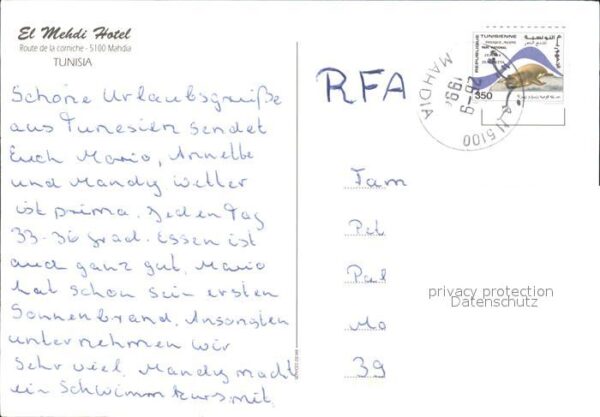 El Mehdi Hotel
Route de la corniche - 5100 Mahdia
TUNISIA
Schöne Urlaubsgrüße
aus Tunesien sendet
Euch Mario, Annette
und Mandy Wetter
ist prima. Jeden Tag
33-36 grad. Essen ist
auch ganz gut. Mario
hat schon sein ersten
Sonnenbrand. Ansonsten
unternehmen wir
sehr viel. Mandy macht
ein Schwimmkurs mit.
RFA
REPUBLIQUE TUNISIENNE
350
5100
MAHDIA
26-9
199
Fam
Pet
Pal
Mo
39
privacy protection
Datenschutz